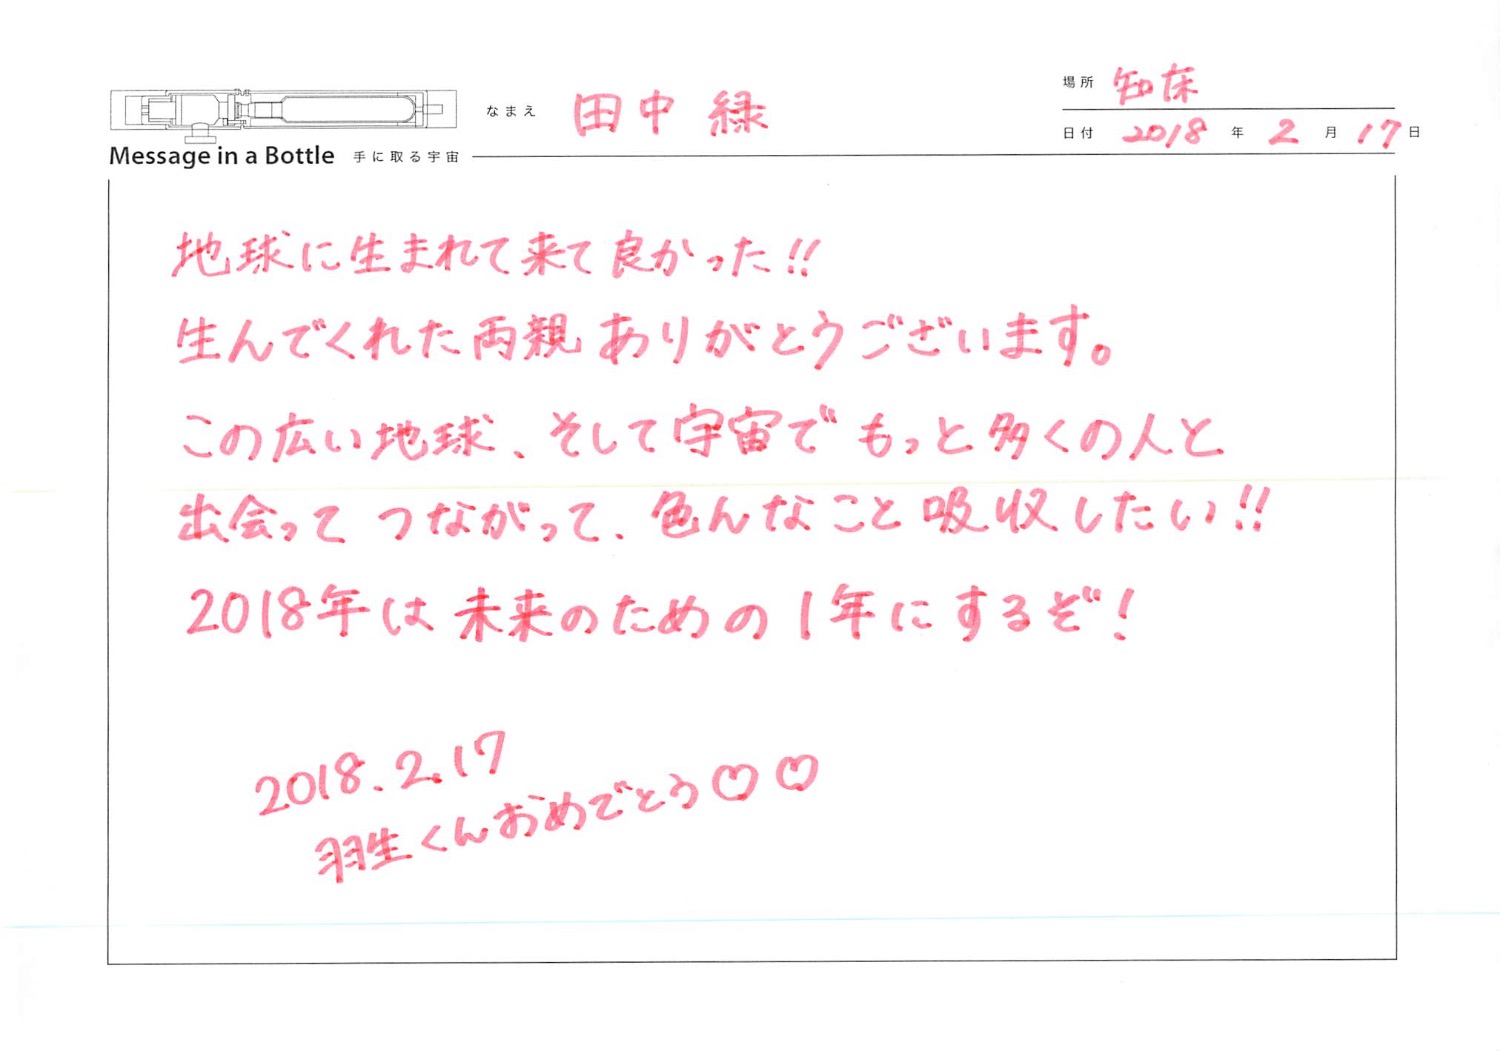 場所 知床
なまえ 田中 緑
日付 2018 年 2 月 17 日
Message in a Bottle 手に取る宇宙
地球に生まれて来て良かった!!
生んでくれた両親ありがとうございます。
この広い地球、そして宇宙でもっと多くの人と
出会って つながって、色んなこと吸収したい!!
2018年は未来のための1年にするぞ!
2018.2.17
羽生くんおめでとう♡♡